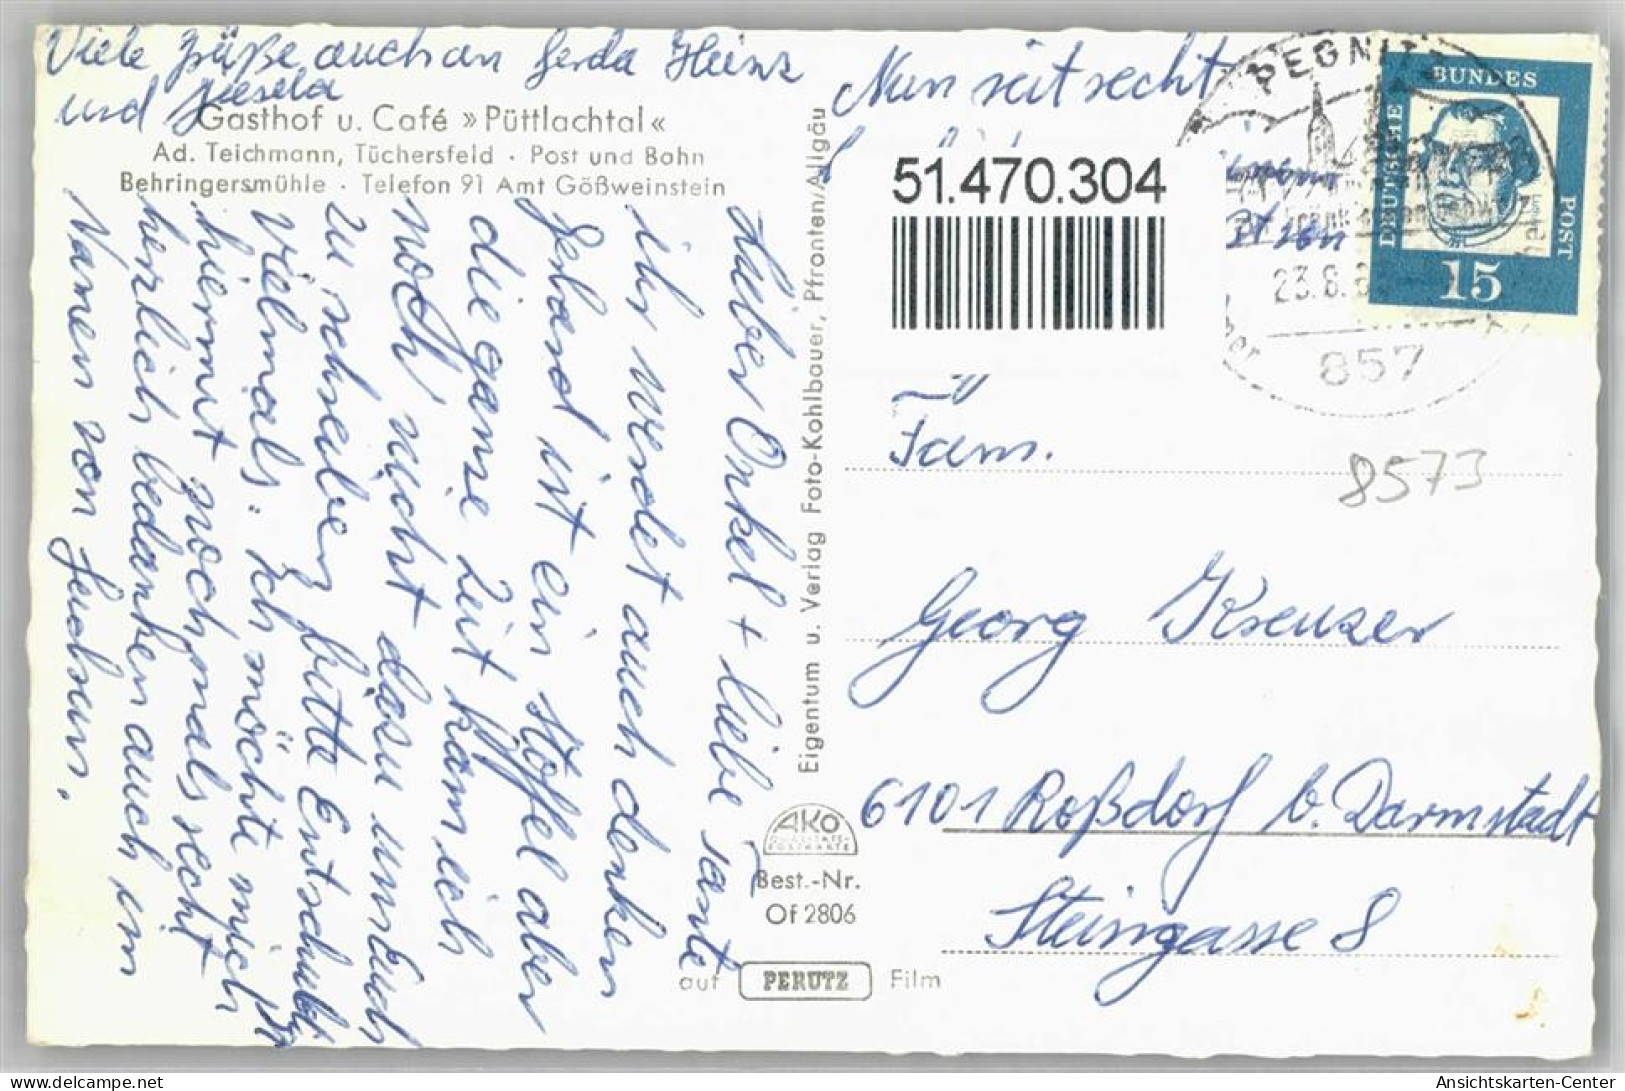 Viele Grüße auch an Gerda Heinz
und Gisela
Gasthof u. Café »Püttlachtal«
Ad. Teichmann, Tüchersfeld · Post und Bahn
Behringersmühle · Telefon 91 Amt Gößweinstein
Lieber Onkel + liebe Tante
ihr werdet auch denken
Gerhard ist ein Stoffel aber
die ganze Zeit kam ich
noch nicht dazu um Euch
zu schreiben bitte Entschuldigt
vielmals. Ich möchte mich
hiermit nochmals recht
herzlich bedanken auch im
Namen von
Eigentum u. Verlag Foto-Kohlbauer, Pfronten/Allgäu
AKO
QUALITÄTS-
POSTKARTE
Best.-Nr.
Of 2806
auf PERUTZ Film
Nun seit recht
51.470.304
PEGNITZ
23.8.6
857
DEUTSCHE
BUNDES
POST
15
Fam.
8573
Georg Kreuzer
6101 Roßdorf b. Darmstadt
Steingasse 8
www.delcampe.net
Ansichtskarten-Center